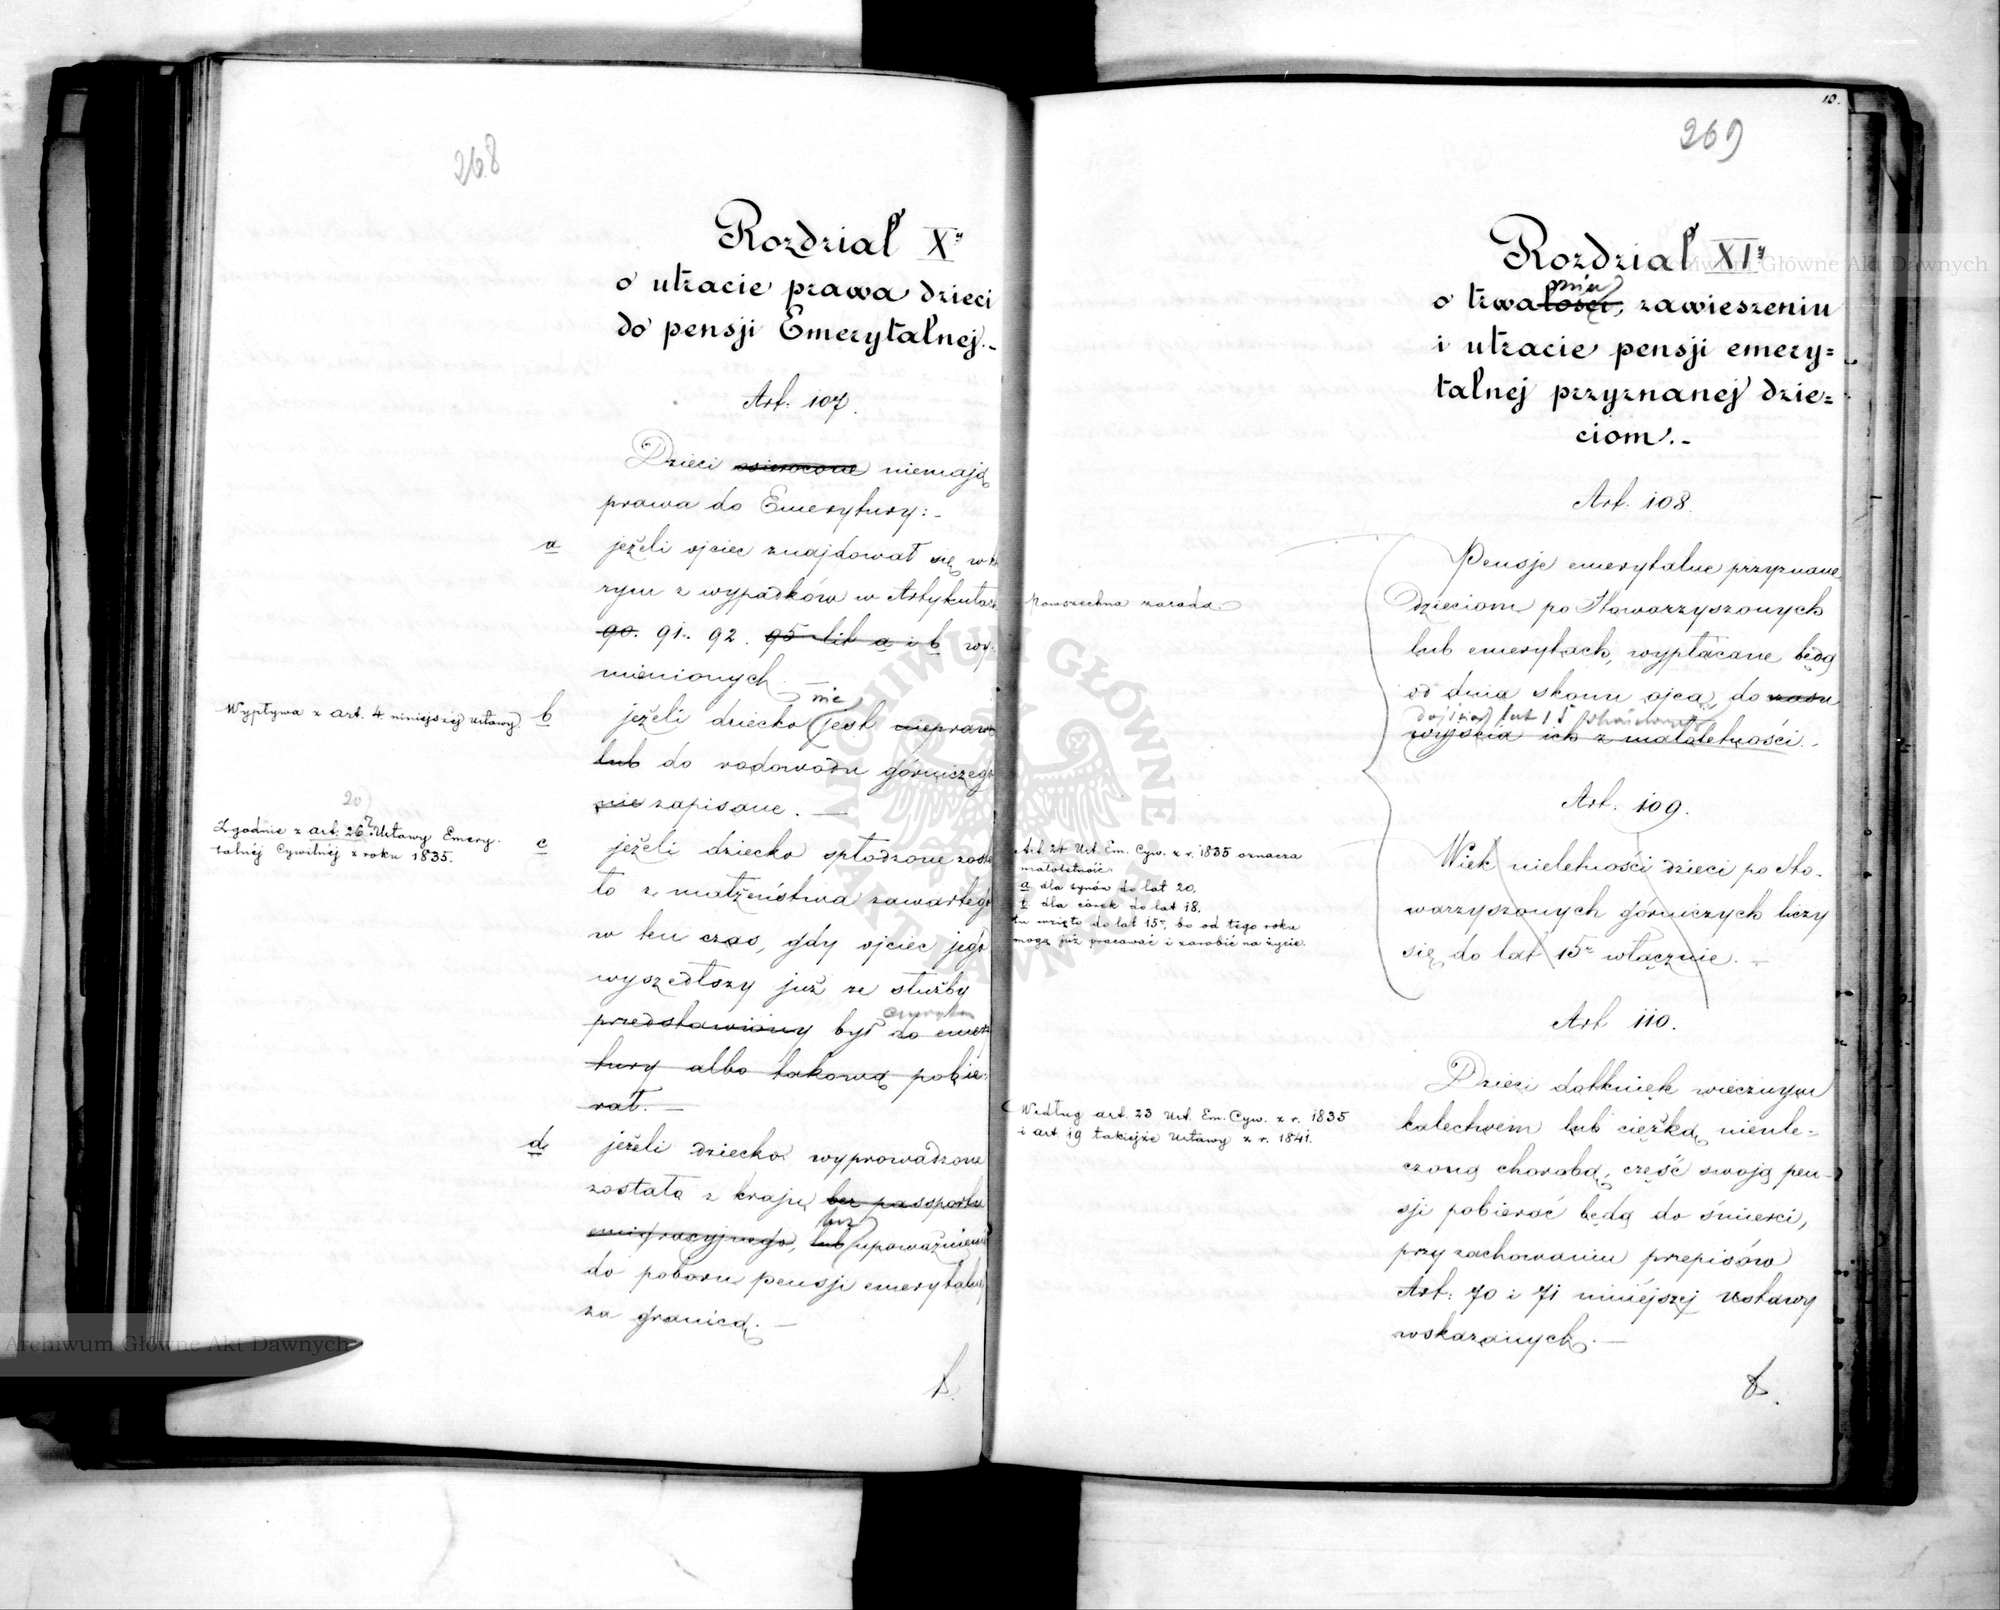 268
Rozdział X y
o utracie prawa dzieci
do pensji Emerytalnej.-
Art. 107.
Dzieci osierocone niemają
prawa do Emerytury:-
a jeżeli ojciec znajdował się w któ
rym z wypadków w Artykułach
90. 91. 92. 95 lit a i b wy-
mienionych.
Wypływa z art. 4. niniejszej ustawy.
nie
b jeżeli dziecko jest niepraw
lub do rodowodu górniczego
nie zapisane. —
20
Zgodnie z art. 26 Ustawy Emery-
talnéj Cywilnéj z roku 1835.
c jeżeli dziecko spłodzone zosta
ło z małżeństwa zawartego
w ten czas, gdy ojciec jego
wyszedłszy już ze służby
emerytem
przedstawiony był do emery
tury albo takową pobie-
rał. —
d jeżeli dziecko wyprowadzone
zostało z kraju bez passportu
bez
emigracyjnego, lub upoważnienia
do poboru pensji emerytalnej
za granicą. —
10.
269
Rozdział XI y
niu
o trwałości, zawieszeniu
i utracie pensji emery=
talnej przyznanej dzie=
ciom.-
Art. 108.
Powszechna zasada.
Pensje emerytalne przyznane
dzieciom po Stowarzyszonych
lub emerytach, wypłacane będą
od dnia skonu ojca, do czasu
dojścia lat 15
wyjścia ich z małoletności.-
Art. 109.
Art. 24 Ust. Em. Cyw. z r. 1835 oznacza
małoletność:
a dla synów do lat 20.
b dla córek do lat 18.
tu wzięto do lat 15, bo od tego roku
mogą już pracować i zarobić na życie.
Wiek nieletności dzieci po Sto-
warzyszonych górniczych liczy
się do lat 15 włącznie. —
Art 110.
Według art. 23 Ust. Em. Cyw. z r. 1835
i art. 19 takiejże Ustawy z r. 1841.
Dzieci dotknięte wiecznym
kalectwem lub ciężką nieule-
czoną chorobą, część swoją pen-
sji pobierać będą do śmierci,
przy zachowaniu przepisów
Art: 70 i 71 niniéjszej Ustawy
wskazanych. —
Archiwum Główne Akt Dawnych
Archiwum Główne Akt Dawnych
ARCHIWUM GŁÓWNE AKT DAWNYCH